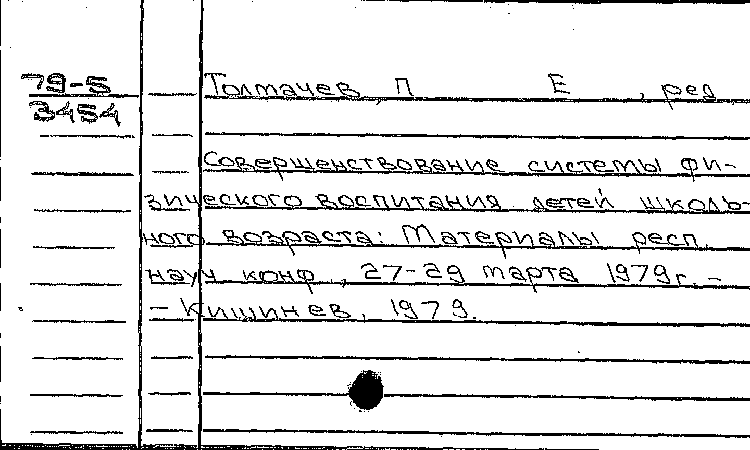 79-5 Толмачев, П Е , ред
3454
Совершенствование системы фи-
зического воспитания детей школь-
ного возраста: Материалы респ.
науч конф , 27-29 марта 1979г. -
- Кишинев, 1979.